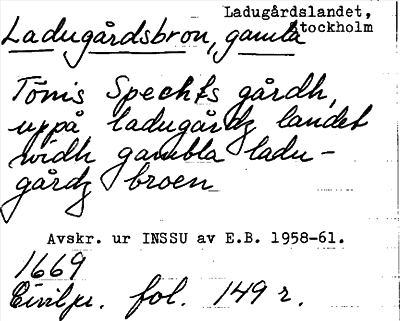 Ladugårdslandet,
Stockholm
Ladugårdsbron, gamla
Tönis Spechts gårdh,
uppå ladugårdz landet
widh gambla ladu-
gårdz broen
Avskr. ur INSSU av E.B. 1958-61.
1669
Civilju. fol. 149 r.